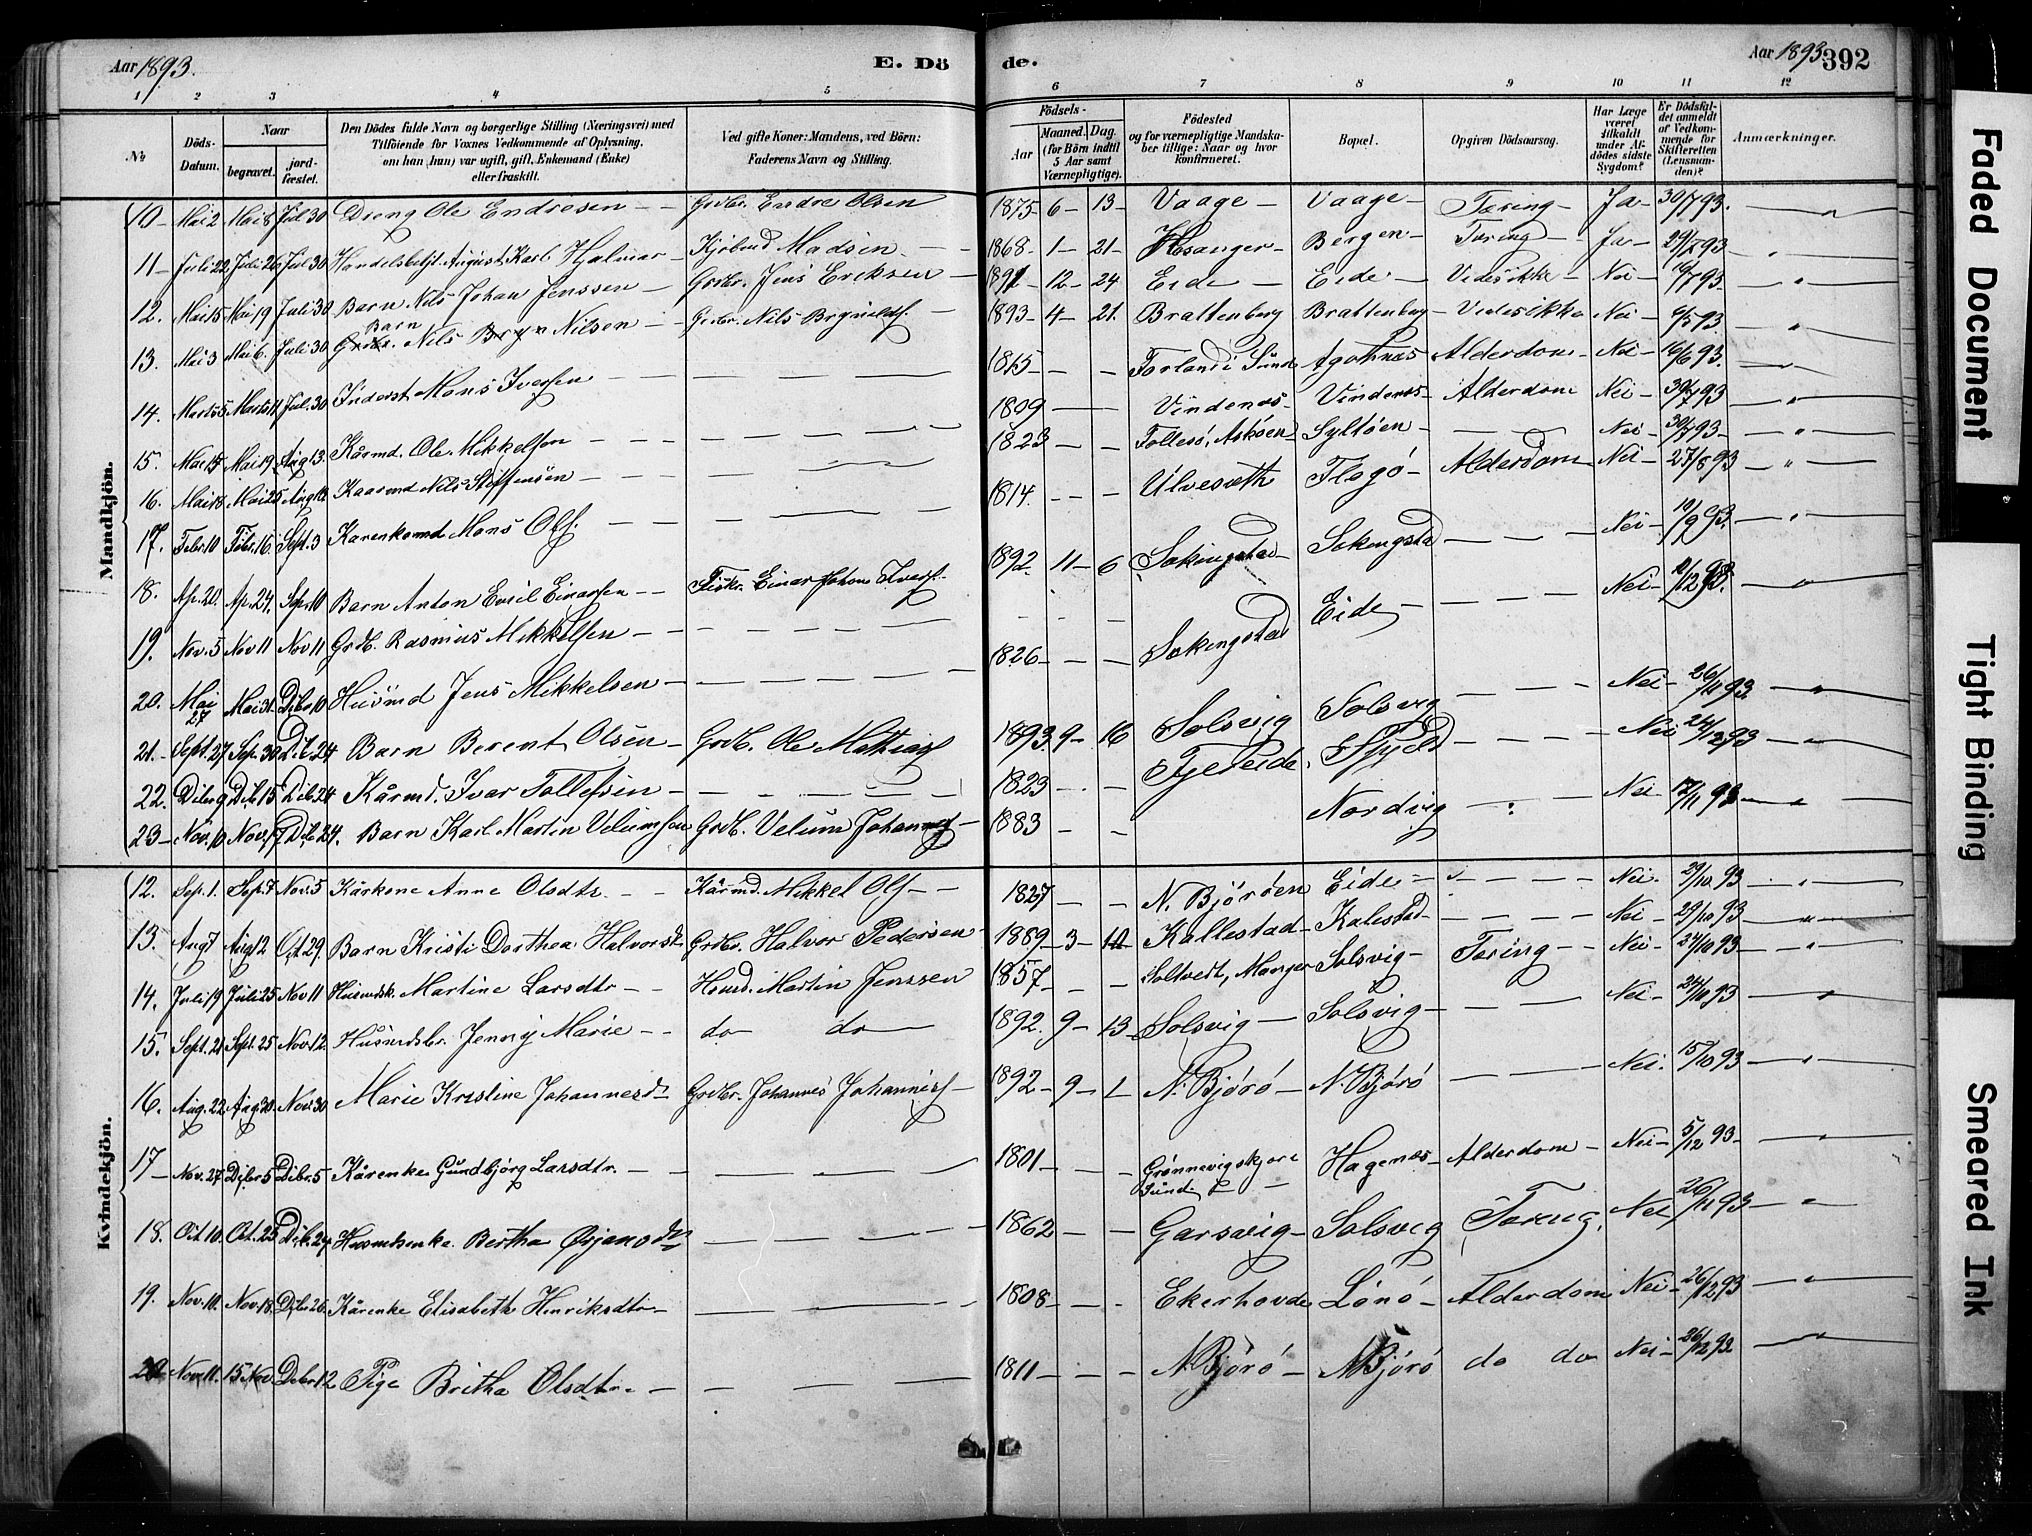 Aar 1893.
E. Dö
de.
Aar 1893
392
1 2 3 4 5 6 7 8 9 10 11 12
No
Döds-Datum.
Naar
begravet.
jordfæstet.
Den Dödes fulde Navn og borgerlige Stilling (Næringsvei) med Tilföiende for Voxnes Vedkommende af Oplysning, om han (hun) var ugift, gift, Enkemand (Enke) eller fraskilt.
Ved gifte Koner: Mandens, ved Börn: Faderens Navn og Stilling.
Födsels-
Aar
Maaned. Dag.
(for Börn indtil 5 Aar samt Værnepligtige).
Födested og for værnepligtige Mandskaber tillige: Naar og hvor konfirmeret.
Bopæl.
Opgiven Dödsaarsag.
Har Læge været tilkaldt under Afdödes sidste Sygdom?
Er Dödsfaldet anmeldt af Vedkommende for Skifteretten (Lensmanden)?
Anmærkninger.
Mandkjön.
10 — Mai 2 Mai 8 Jul 30 Dreng Ole Endresen — Grdbr. Endre Olsen 1875 6 — 13 — Vaage — Vaage — Tæring — Ja — 30/7 93. — " —
11 — Juli 22 Juli 26 Jul 30 Handelsbetjt. August Karl Hjalmar — Kjøbmd Madsen — 1868 — 1 — 21 — Hesanger — Bergen — Tæring — Ja — 29/7 93 — " —
12. Mai 15 Mai 19 Juli 30 Barn Nils Johan Jenssen — Grdbr. Jens Eriksen — 1891 — 12 — 24 Eide — Eide — Vides ikke — Nei — 16/7 93. — " —
13. Mai 3 Mai 6. Juli 30 Barn Nils Bryn Nilsen — Grdbr. Nils Brynildsf. — 1893 — 4 — 21. Brattenborg Brattenborg — Vides ikke Nei — 6/5 93. — " —
14. Marts 5 Marts 11 Jul. 30 Inderst Mons Iversen — — 1815 — — Forland i Sund Agotnæs Alderdom — Nei — 16/6 93. — " —
15. Mai 15 Mai 19 Aug 13. Kårmd. Ole Mikkelsen — — 1809 — Vindenæs — Vindenæs — Alderdom Nei — 30/7 93 — " —
16. Mai 18 Mai 25 Aug 12 Kaarmd Nils Steffensön — — 1823 — — Follesö, Asköen — Syltöen — — Nei — 30/7 93 — " —
17. Febr. 10 Febr. 16. Sept. 3 Kårenkemd Mons Ols. — — 1814. — — Ulvesæth Flogö — Alderdom Nei — 27/8 93 — " —
18. Ap. 20. Ap. 24. Sep. 10 Barn Anton Emil Einarsen — Fiskr. Einar Johan Iversf. 1892. 11 — 6 Sokingstad — Sokingstad — — Nei — 10/9 93. — " —
19. Nov. 5 Nov 11 Nov 11 Grdb. Rasmus Mikkelsen — — Eide — — Nei — 12/12 93. — " —
20. Mai 27 Mai 31. Dbr. 10 Husmd Jens Mikkelsen — — 1826 — — Sokingstad
21. — Sept. 27 Sep. 30 Db. 24 Barn Berent Olsen — Grdb. Ole Mathiasf 1893. 9 — 16 Solsvig Solsvig — — Nei — 26/11 93 — " —
22. Dbr 9 Dbr 15 Dbr 24 Kårmd. Ivar Tollefsen — — 1823 — — Fjeleide. — — Nei 24/12 93 — " —
23 — Nov. 10 Nov. 17 Dbr 24. Barn Karl Martin Velumsen Grdb. Velum Johannesf — 1883 — — Nordvig — — Nei 12/11 93 — " —
Kvindekjön.
12. Sep. 1. Sep. 7 Nov. 5 Kårkone Anne Olsdtr. — — Kårmd. Mikkel Ols — — 1827 — — N. Björöen Eide — — — Nei. 29/10 93 — " —
13. Aug 7 Aug 12 Oct 29. Barn Kristi Dorthea Halvorsd. Grdbr. Halvor Pedersen — 1889 — 3 — 10 Kallestad — Kalestad — — Nei — 29/10 93 — " —
14. Juli 19 Juli 25 Nov 11 Husmdsk. Martine Larsdtr — — Husmd. Martin Jenssen 1857 — — Soltvedt, Manger Solsvig — Tæring — Nei — 24/10 93 — " —
15. Sept. 21 Sept. 25 Nov 12. Husmdsbr. Jenny Marie — — do do — 1892. 9 — 13 Solsvig — Solsvig — — Nei — 24/10 93 — " —
16. Aug. 22 Aug 30 Nov 30 Marie Kristine Johannesdr. Grdbr. Johannes Johannesf — 1892 — 9 — 1 N. Björö — N. Björö — — Nei. 15/10 93 — " —
17 — Nov. 27 Dbr 5 Dbr. 5 Kårenke Gundbjörg Larsdtr. — — 1801 — — Grönnevigskjær i Sund — Hagenæs — Alderdom — Nei — 5/12 93 — " —
18. Oct 10. Oct. 25 Dbr. 24 Husmdsenke Bertha Ørjansdtr — 1862 — — Garsvig — Solsvig Tæring. Nei 26/11 93 — " —
19. Nov. 10. Nov. 18. Dbr 26. Kårenke Elisabeth Henriksdtr — 1808 — — Ekerhovde Lönö — Alderdom Nei — 26/12 93 — " —
20 Nov 11. 15 Nov Dbr 12 Pige Britha Olsdtr — — 1811 — — N. Björö — N Björö do do Nei — 26/12 93. — " —
Faded Document
Tight Binding
Smeared Ink